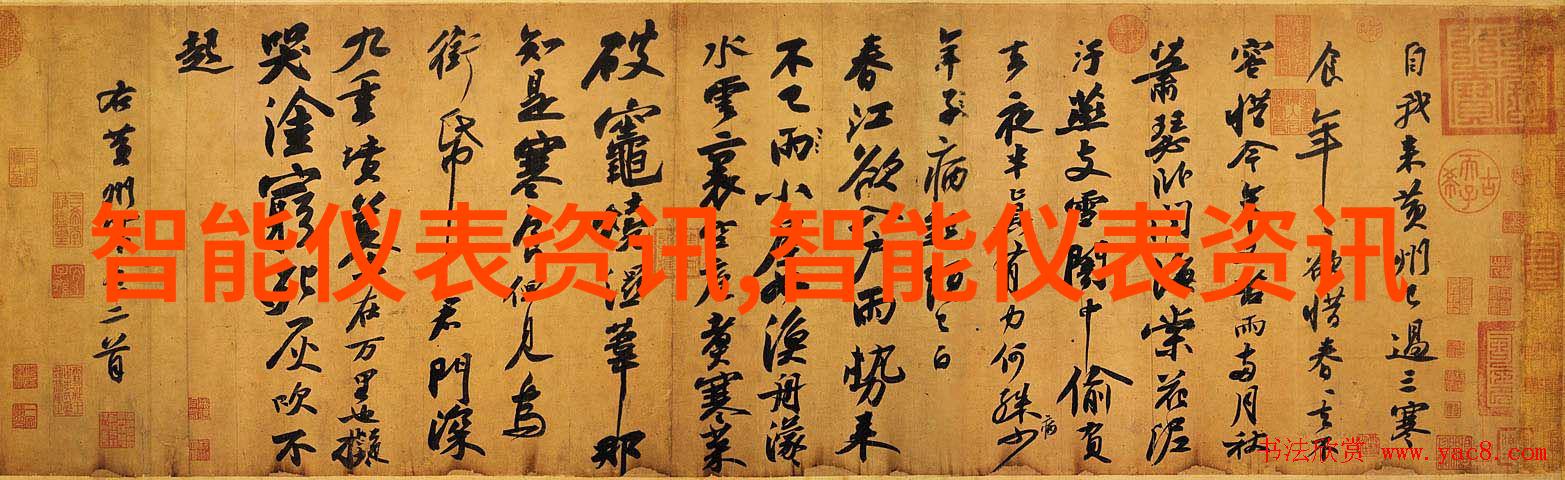 自我来黄州已過三寒
食年〻欲惜春〻去不
容惜今年又苦雨兩月秋
蕭瑟卧聞海棠花泥
汙燕支雪闇中偷負
去夜半真有力何殊少病
年子病起頭已白
春江欲入户雨勢来
不已雨小屋如漁舟濛
水雲裏空庖煮寒菜
破竈燒濕葦那
知是寒食但見烏
銜帋君門深
九重墳墓在万里也擬
哭塗窮死灰吹不
起
右黄州寒食二首
智能仪表资讯,智能仪表资讯
书法欣赏 www.yac8.com